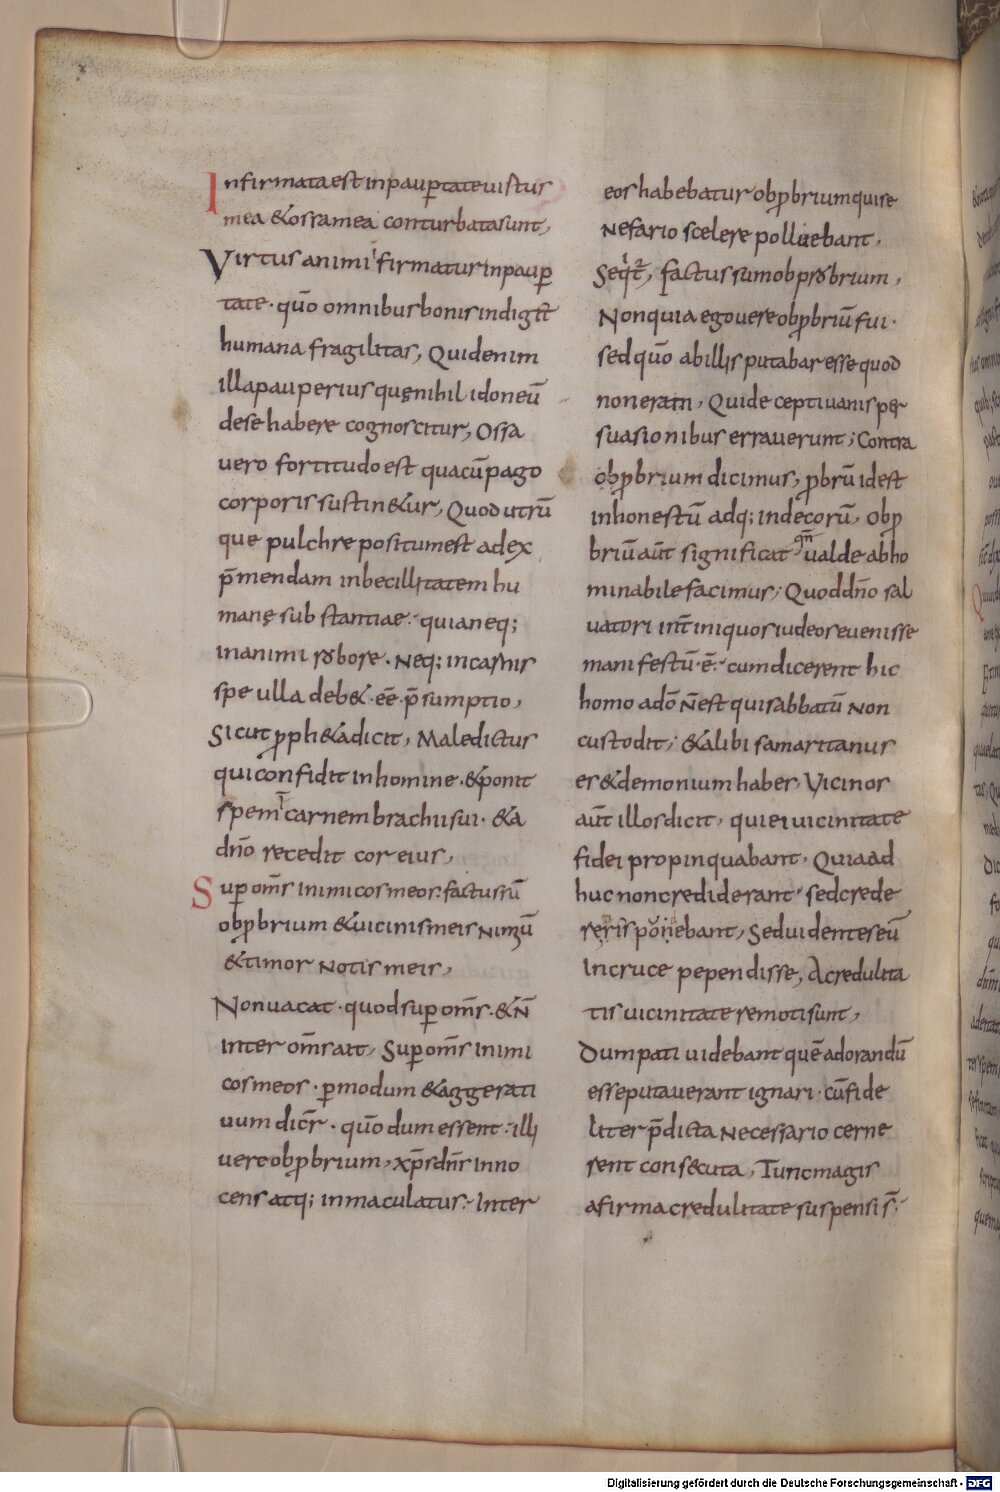 Infirmata est in paup̱tate uirtus
mea & ossa mea conturbata sunt,
Virtus animi infirmatur in paup̱
tate · quō omnibus bonis indig&
humana fragilitas, Quid enim
illa pauperius quę nihil idoneū
de se habere cognoscitur, Ossa
uero fortitudo est qua cūpago
corporis sustin&ur, Quod utrū
que pulchre positum est ad ex
p̄mendam inbecillitatem hu
manę substantiae · quia neq;
in animi robore · Neq; in carnis
spe ulla deb& · eē · p̄sumptio,
Sicut p̱ph&a dicit, Maledictus
qui confidit in homine · & ponit
spem ī carnem brachii sui · & a
dn̄o recedit cor eius,
Sup̱ om̄s inimicos meos factus sū
obp̱brium & uicinis meis nimiū
& timor notis meis,
Non uacat · quod sup̱ om̄s · & n̄
inter om̄s ait, Sup̱ om̄s inimi
cos meos · p̱ modum & aggerati
uum dicr̄ · quō dum essent · illi
uere obp̱brium, xp̄s dn̄s inno
cens atq; inmaculatus · Inter
eos habebatur obp̱brium qui se
Nefario scelere polluebant,
Seqit̄, factus sum obprobrium,
Non quia ego uere obp̱briū fui ·
sed quō ab illis putabar esse quod
non eram, Qui deceptiua nis per
suasionibus errauerunt; Contra
obp̱brium dicimus, p̱brū id est
inhonestū adq; indecorū, Obp̱
briū aūt significat qn̄ ualde abho
minabile facimus; Quod dn̄o sal
uatori int̄ iniquos iudeos euenisse
manifestū · ē · cum dicerent hic
homo a dō n̄ est qui sabbatū non
custodit; & alibi samaritanus
es & demonium habes, Vicinos
aūt illos dicit, qui ei uicinitate
fidei propinquabant, Quia ad
huc non crediderant, sed crede
re ris pōnebant, Sed uidentes eū
In cruce pependisse, A credulita
tis uicinitate remoti sunt,
Dum pati uidebant quē adorandū
esse putauerant ignari · cū fide
liter p̄dicta necessario cerne
rent consecuta, Tunc magis
a firma credulitate suspensi s̄ ·
Digitalisierung gefördert durch die Deutsche Forschungsgemeinschaft - DFG